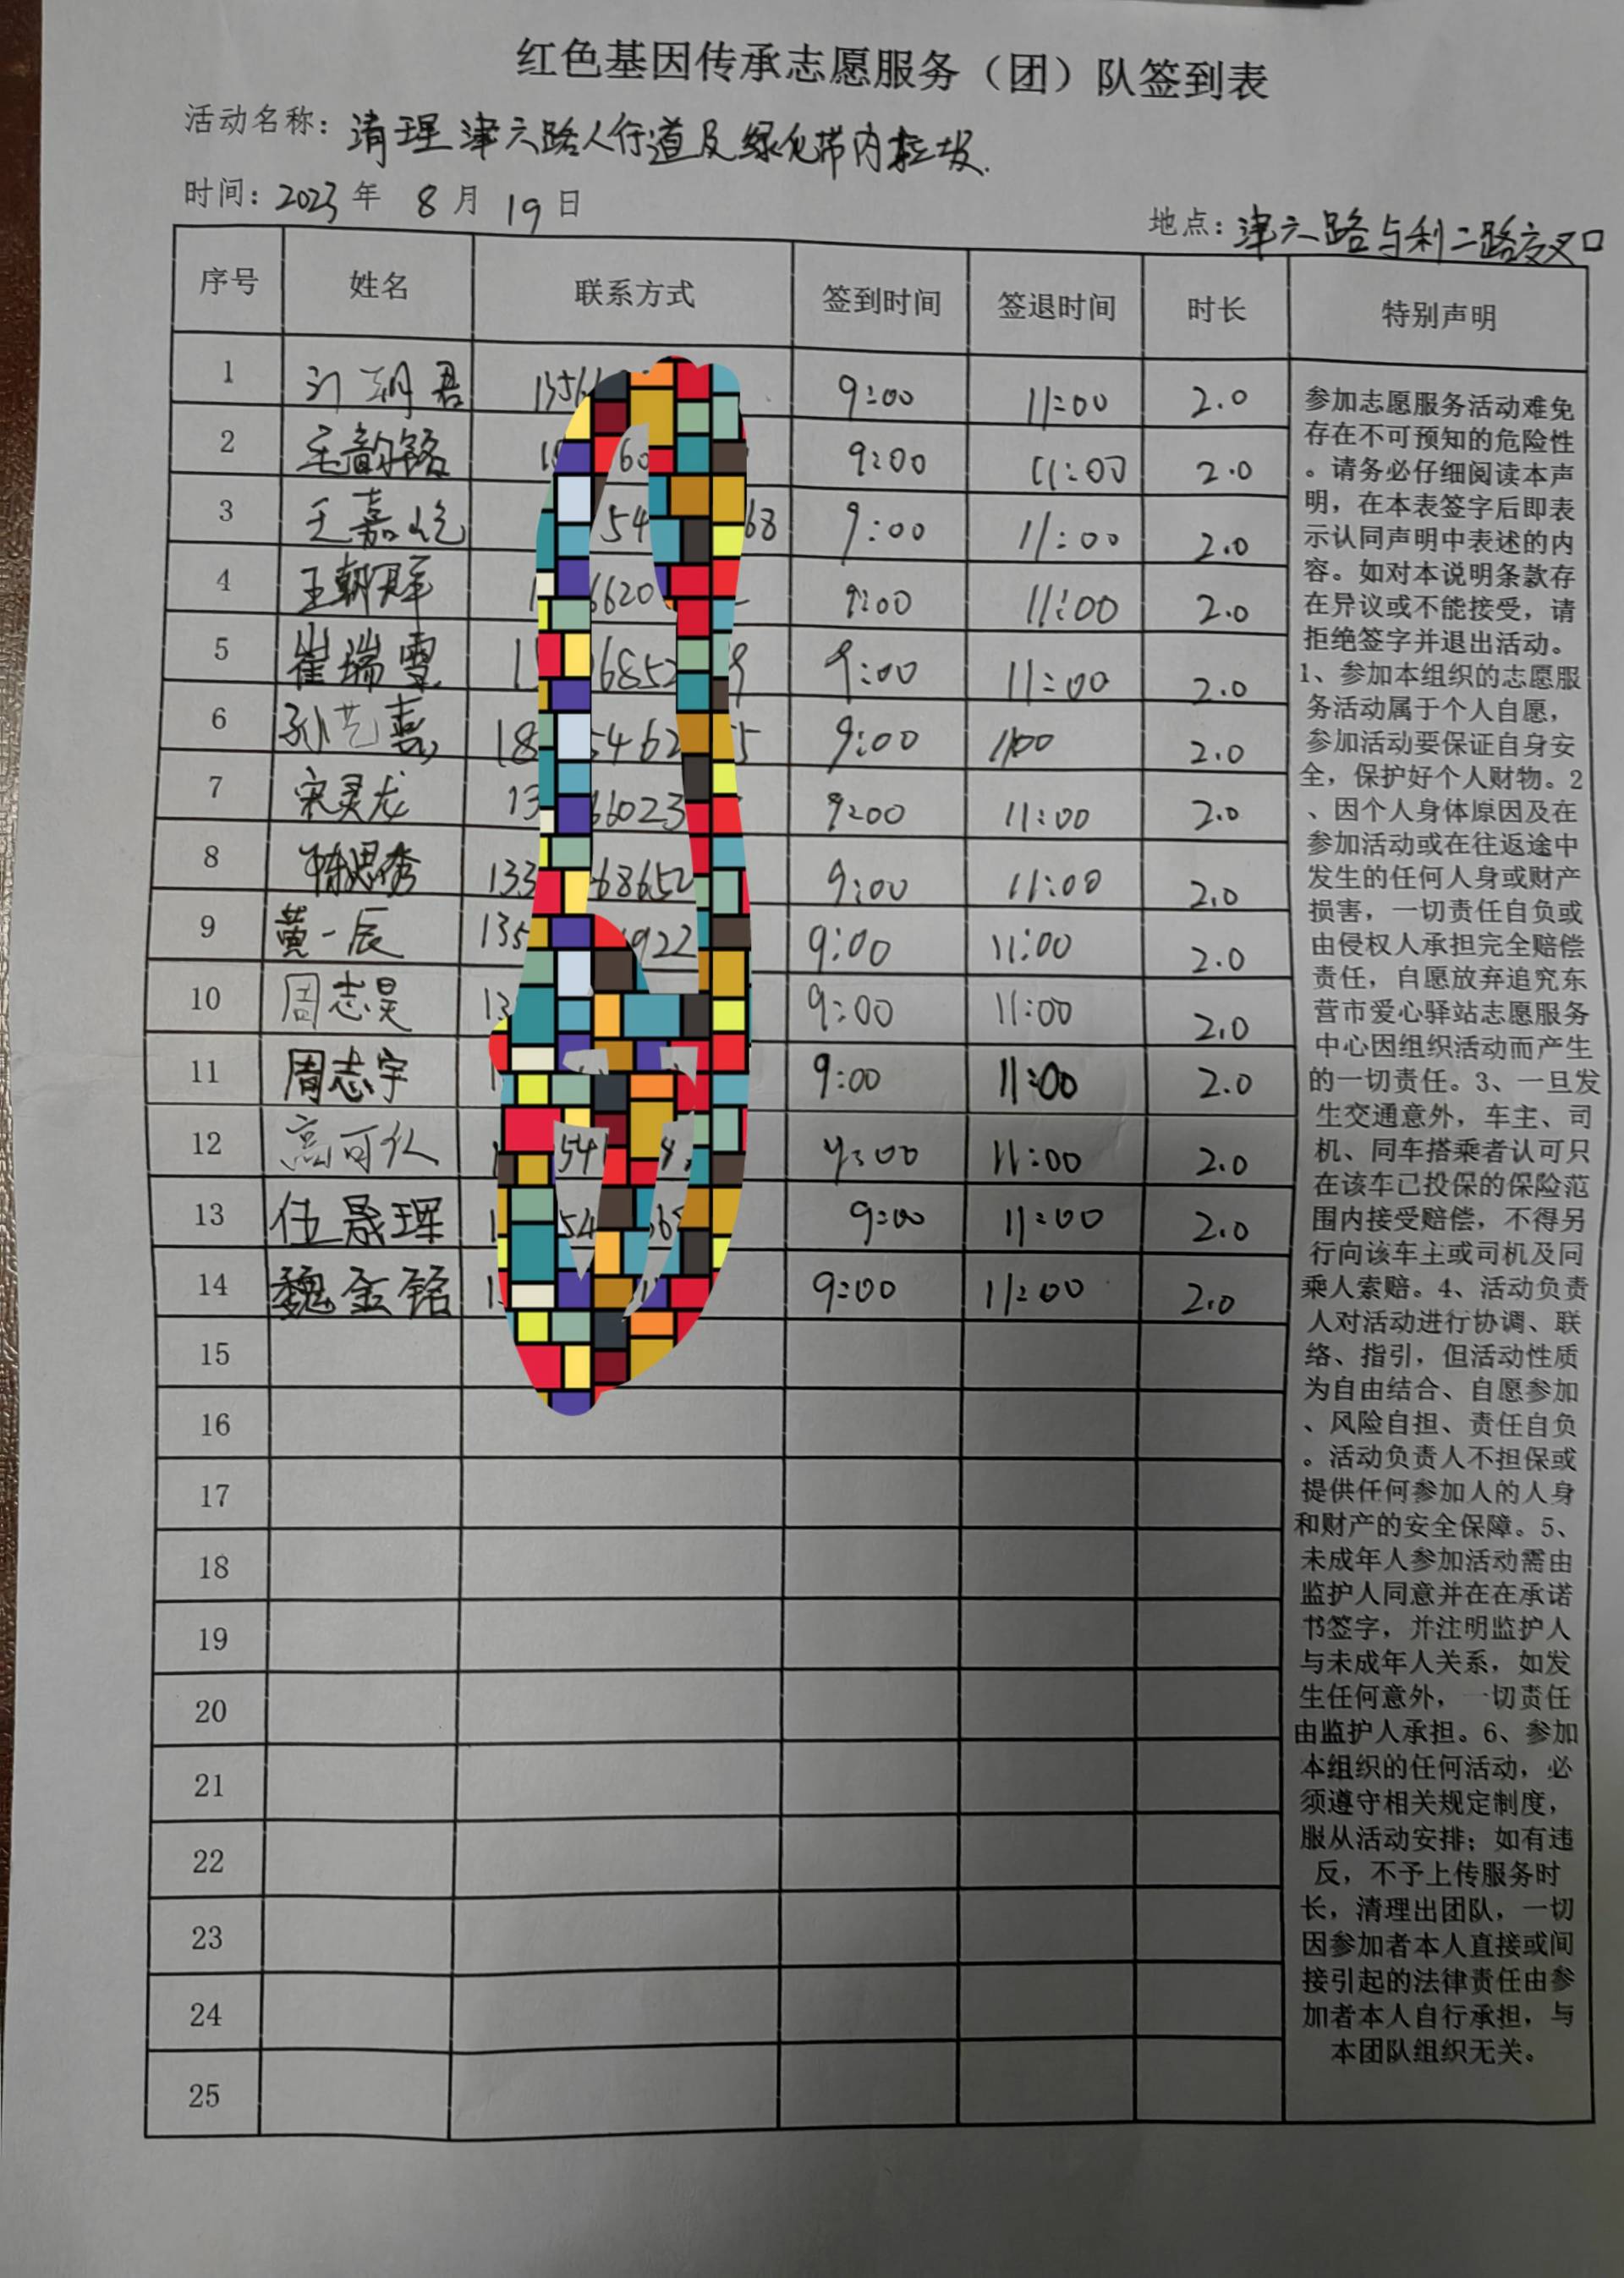 红色基因传承志愿服务（团）队签到表
活动名称：清理津六路人行道及绿化带内垃圾.
时间：2023年 8月 19日
地点：津六路与利二路交叉口
序号 姓名 联系方式 签到时间 签退时间 时长 特别声明
1 刘朝君 9:00 11:00 2.0
2 王韵铭 9:00 11:00 2.0
3 王嘉 9:00 11:00 2.0
4 王朝 9:00 11:00 2.0
5 崔瑞雪 9:00 11:00 2.0
6 孙艺嘉 9:00 1100 2.0
7 宋灵龙 9:00 11:00 2.0
8 陈思秀 9:00 11:00 2.0
9 黄一辰 9:00 11:00 2.0
10 周志昊 9:00 11:00 2.0
11 周志宇 9:00 11:00 2.0
12 高可 9:00 11:00 2.0
13 伍晟珲 9:00 11:00 2.0
14 魏金铭 9:00 11:00 2.0
15
16
17
18
19
20
21
22
23
24
25
参加志愿服务活动难免
存在不可预知的危险性
。请务必仔细阅读本声
明，在本表签字后即表
示认同声明中表述的内
容。如对本说明条款存
在异议或不能接受，请
拒绝签字并退出活动。
1、参加本组织的志愿服
务活动属于个人自愿，
参加活动要保证自身安
全，保护好个人财物。2
、因个人身体原因及在
参加活动或在往返途中
发生的任何人身或财产
损害，一切责任自负或
由侵权人承担完全赔偿
责任，自愿放弃追究东
营市爱心驿站志愿服务
中心因组织活动而产生
的一切责任。3、一旦发
生交通意外，车主、司
机、同车搭乘者认可只
在该车已投保的保险范
围内接受赔偿，不得另
行向该车主或司机及同
乘人索赔。4、活动负责
人对活动进行协调、联
络、指引，但活动性质
为自由结合、自愿参加
、风险自担、责任自负
。活动负责人不担保或
提供任何参加人的人身
和财产的安全保障。5、
未成年人参加活动需由
监护人同意并在在承诺
书签字，并注明监护人
与未成年人关系，如发
生任何意外，一切责任
由监护人承担。6、参加
本组织的任何活动，必
须遵守相关规定制度，
服从活动安排；如有违
反，不予上传服务时
长，清理出团队，一切
因参加者本人直接或间
接引起的法律责任由参
加者本人自行承担，与
本团队组织无关。